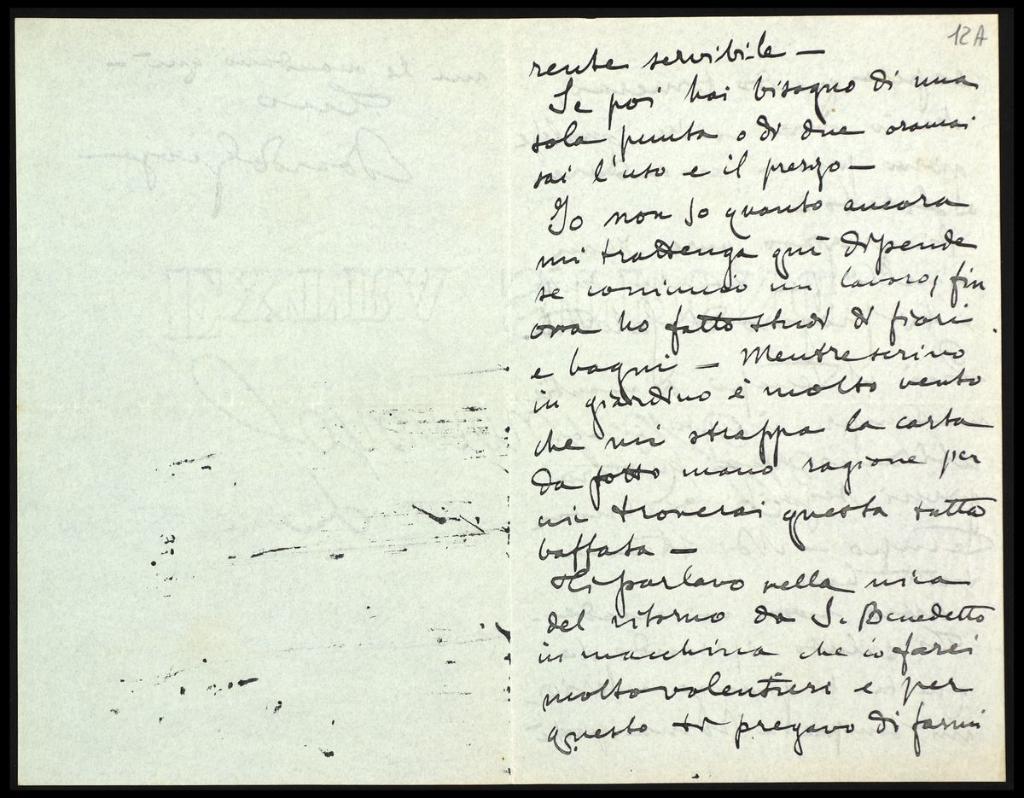 12A
rente servibile —
Se poi hai bisogno di una
sola punta o di due oramai
sai l'uso e il prezzo —
Io non so quanto ancora
mi trattenga quì dipende
se comincio un lavoro, fin
ora ho fatto studi di fiori
e bagni — Mentre scrivo
in giardino è molto vento
che mi strappa la carta
da sotto mano ragione per
cui troverai questa tutta
baffata —
Ti parlavo nella mia
del ritorno da S. Benedetto
in macchina che io farei
molto volentieri e per
questo ti pregavo di farmi